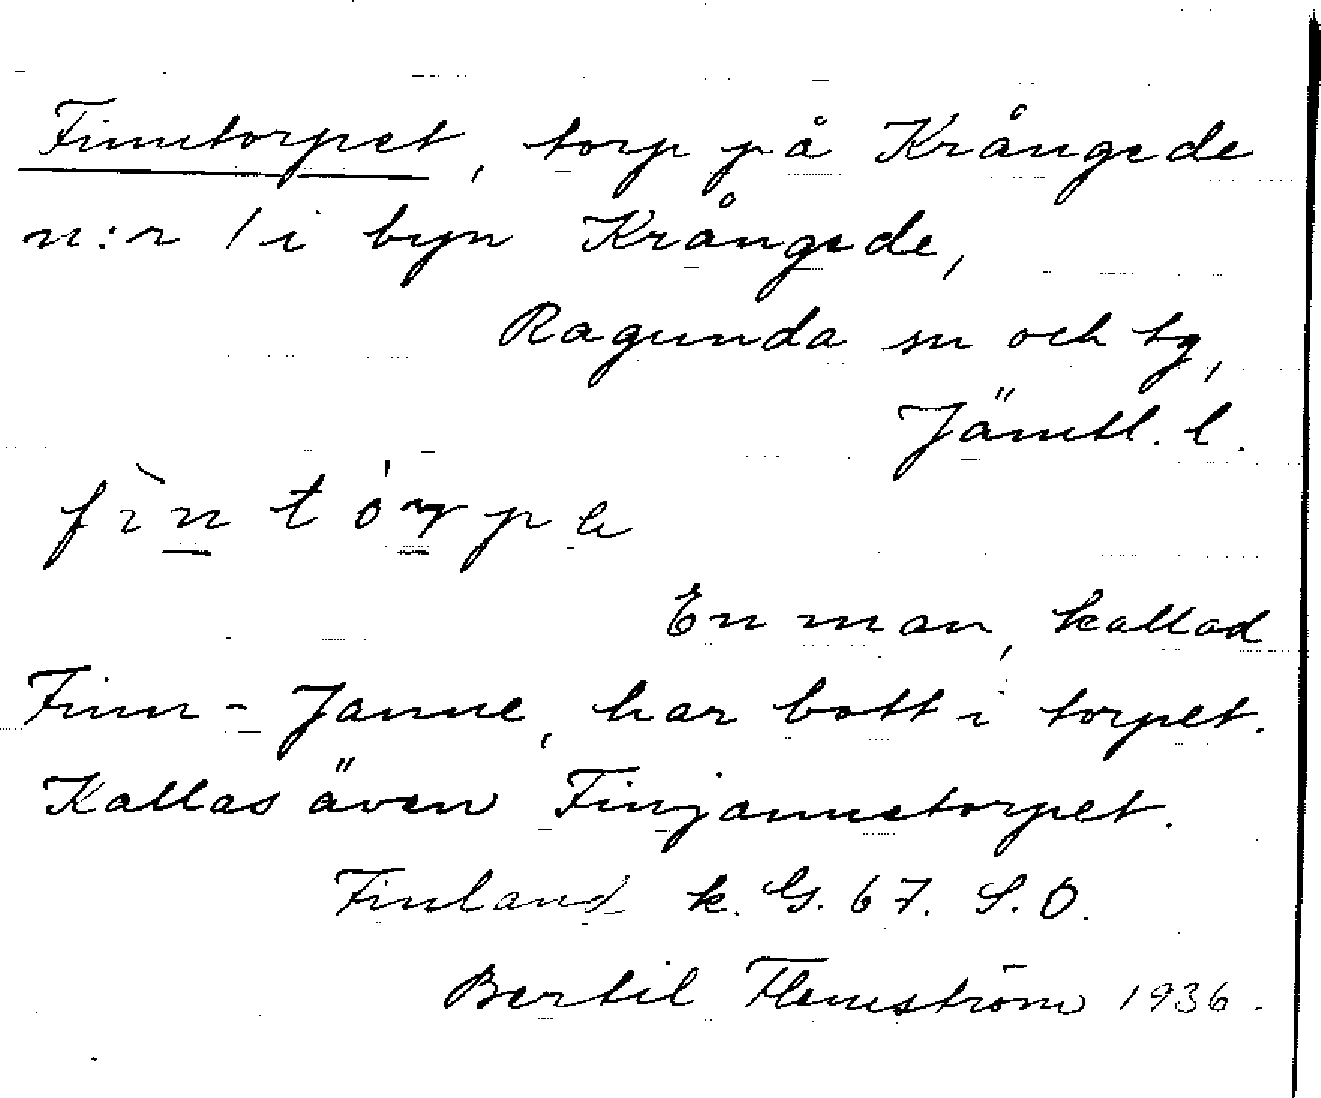 Finntorpet, torp på Krångede
n:r 1 i byn Krångede,
Ragunda sn och tg,
Jämtl. l.
En man, kallad
Finn-Janne, har bott i torpet.
Kallas även Finjannetorpet.
Finland k. G. 67. S.O.
Bertil Flemström 1936.